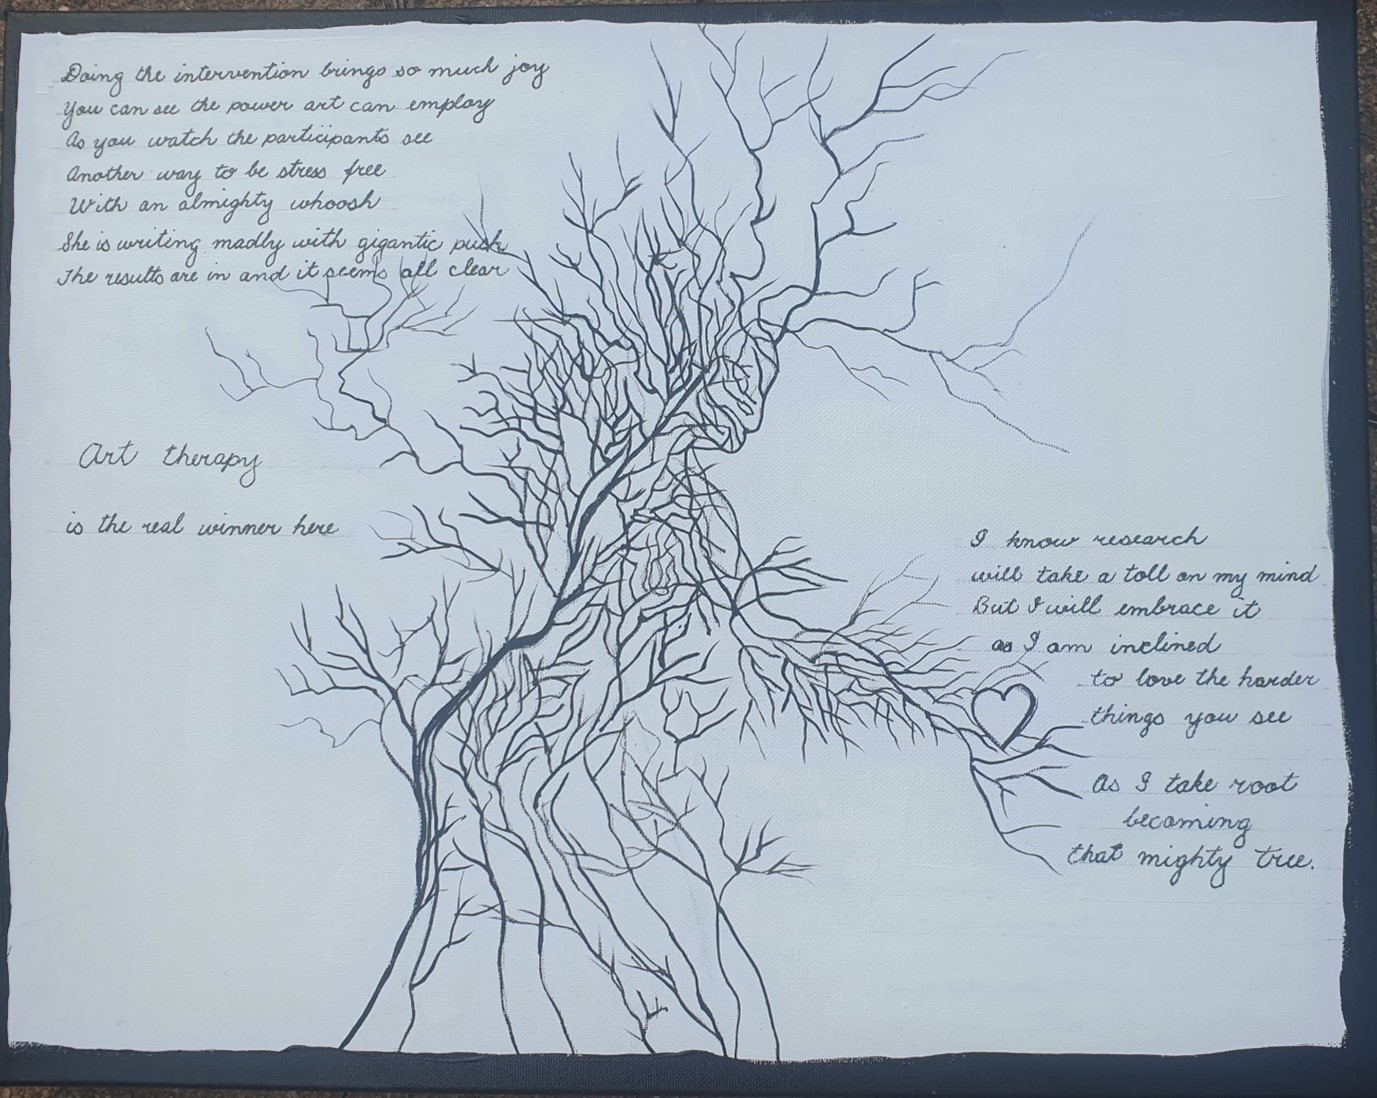 Doing the intervention brings so much joy
You can see the power art can employ
As you watch the participants see
Another way to be stress free
With an almighty whoosh
She is writing madly with gigantic push
The results are in and it seems all clear
Art therapy
is the real winner here
I know research
will take a toll on my mind
But I will embrace it
as I am inclined
to love the harder
things you see
As I take root
becoming
that mighty tree.